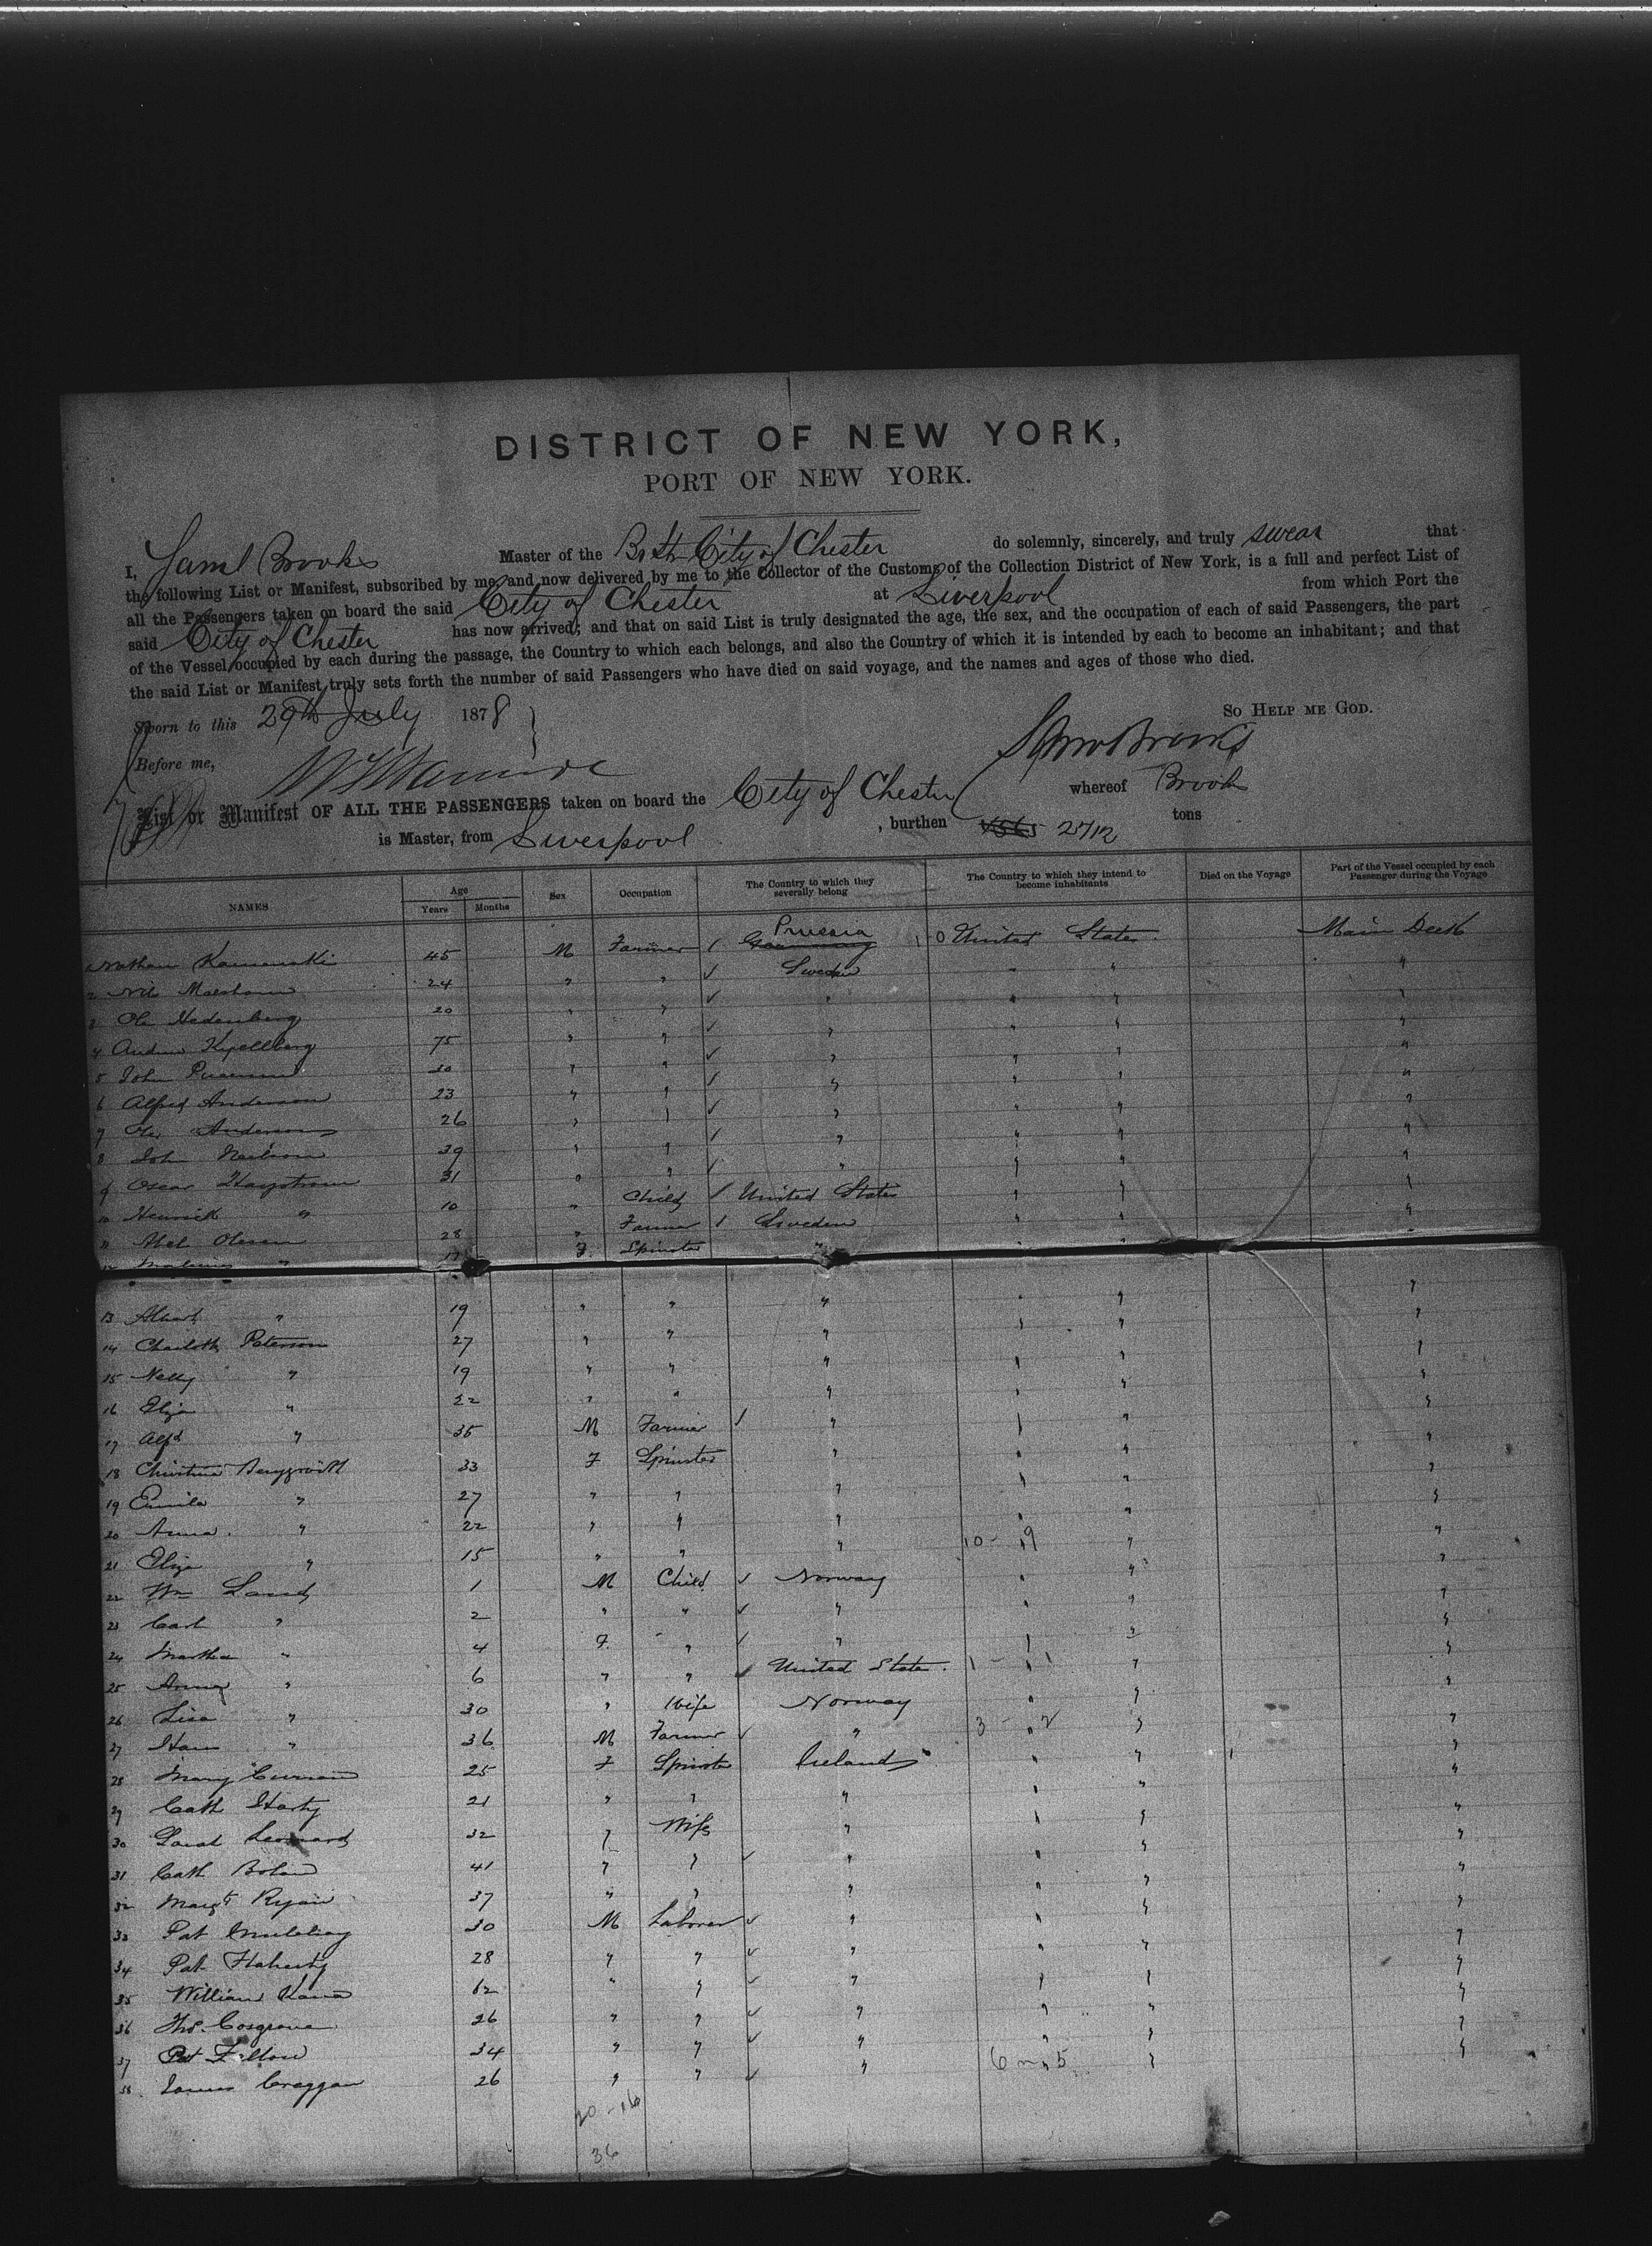 DISTRICT OF NEW YORK,
PORT OF NEW YORK.
I, Saml Brooks Master of the Br Str City of Chester do solemnly, sincerely, and truly swear that
the following List or Manifest, subscribed by me, and now delivered by me to the Collector of the Customs of the Collection District of New York, is a full and perfect List of
all the Passengers taken on board the said City of Chester at Liverpool from which Port the
said City of Chester has now arrived; and that on said List is truly designated the age, the sex, and the occupation of each of said Passengers, the part
of the Vessel occupied by each during the passage, the Country to which each belongs, and also the Country of which it is intended by each to become an inhabitant; and that
the said List or Manifest truly sets forth the number of said Passengers who have died on said voyage, and the names and ages of those who died.
Sworn to this 29th July 1878 So HELP ME GOD.
Before me, Saml Brooks
List or Manifest OF ALL THE PASSENGERS taken on board the City of Chester whereof Brooks
is Master, from Liverpool , burthen 2712 tons
NAMES Age Years Months Sex Occupation The Country to which they severally belong The Country to which they intend to become inhabitants Died on the Voyage Part of the Vessel occupied by each Passenger during the Voyage
Nathan Kamenski 45 M Farmer / Prussia Germany 1 0 United States Main Deck
2 Nils 24 " " ✓ Sweden " " "
3 Ole Hedenberg 20 " " ✓ " " " "
4 Andrew Kjellberg 75 " " ✓ " " " "
5 John 30 " " ✓ " " " "
6 Alfred Anderson 23 " " ✓ " " " "
7 Ole Anderson 26 " " ✓ " " " "
8 John Neilson 39 " " ✓ " " " "
9 Oscar Hagstrom 31 " " / " " " "
10 Henrick " 10 " Child / United States " " "
11 Abel Olesen 28 " Farmer / Sweden " " "
12 " 17 F Spinster " " " "
13 " 19 " " " " " "
14 Charlotte Peterson 27 " " " " " "
15 Nelly " 19 " " " " " "
16 Eliza " 22 " " " " " "
17 Alfd " 35 M Farmer / " " " "
18 Christina 33 F Spinster " " " "
19 Emila " 27 " " " " " "
20 Anna " 22 " " " " " "
21 Eliza " 15 " " " 10 - 9 " " "
22 Wm Land 1 M Child ✓ Norway " " "
23 Carl " 2 " " ✓ " " " "
24 Martha " 4 F " ✓ " " " "
25 Anna " 6 " " ✓ United State 1 - 1 " " "
26 Lisa " 30 " Wife Norway " " "
27 Hans " 36 M Farmer ✓ " 3 - 2 " " "
28 Mary Curran 25 F Spinster Ireland " " "
29 Cath Harty 21 " " " " " "
30 Sarah Leonard 32 " Wife " " " "
31 Cath Boland 41 " " ✓ " " " "
32 Margt Ryan 37 " " " " " "
33 Pat 30 M Laborer ✓ " " " "
34 Pat Flaherty 28 " " ✓ " " " "
35 William Kane 62 " " ✓ " " " "
36 Thos. Cosgrove 26 " " ✓ " " " "
37 Pat 34 " " ✓ " " " "
38 James Creggan 26 " " ✓ " 6 - 5 " " "
20 - 16
36